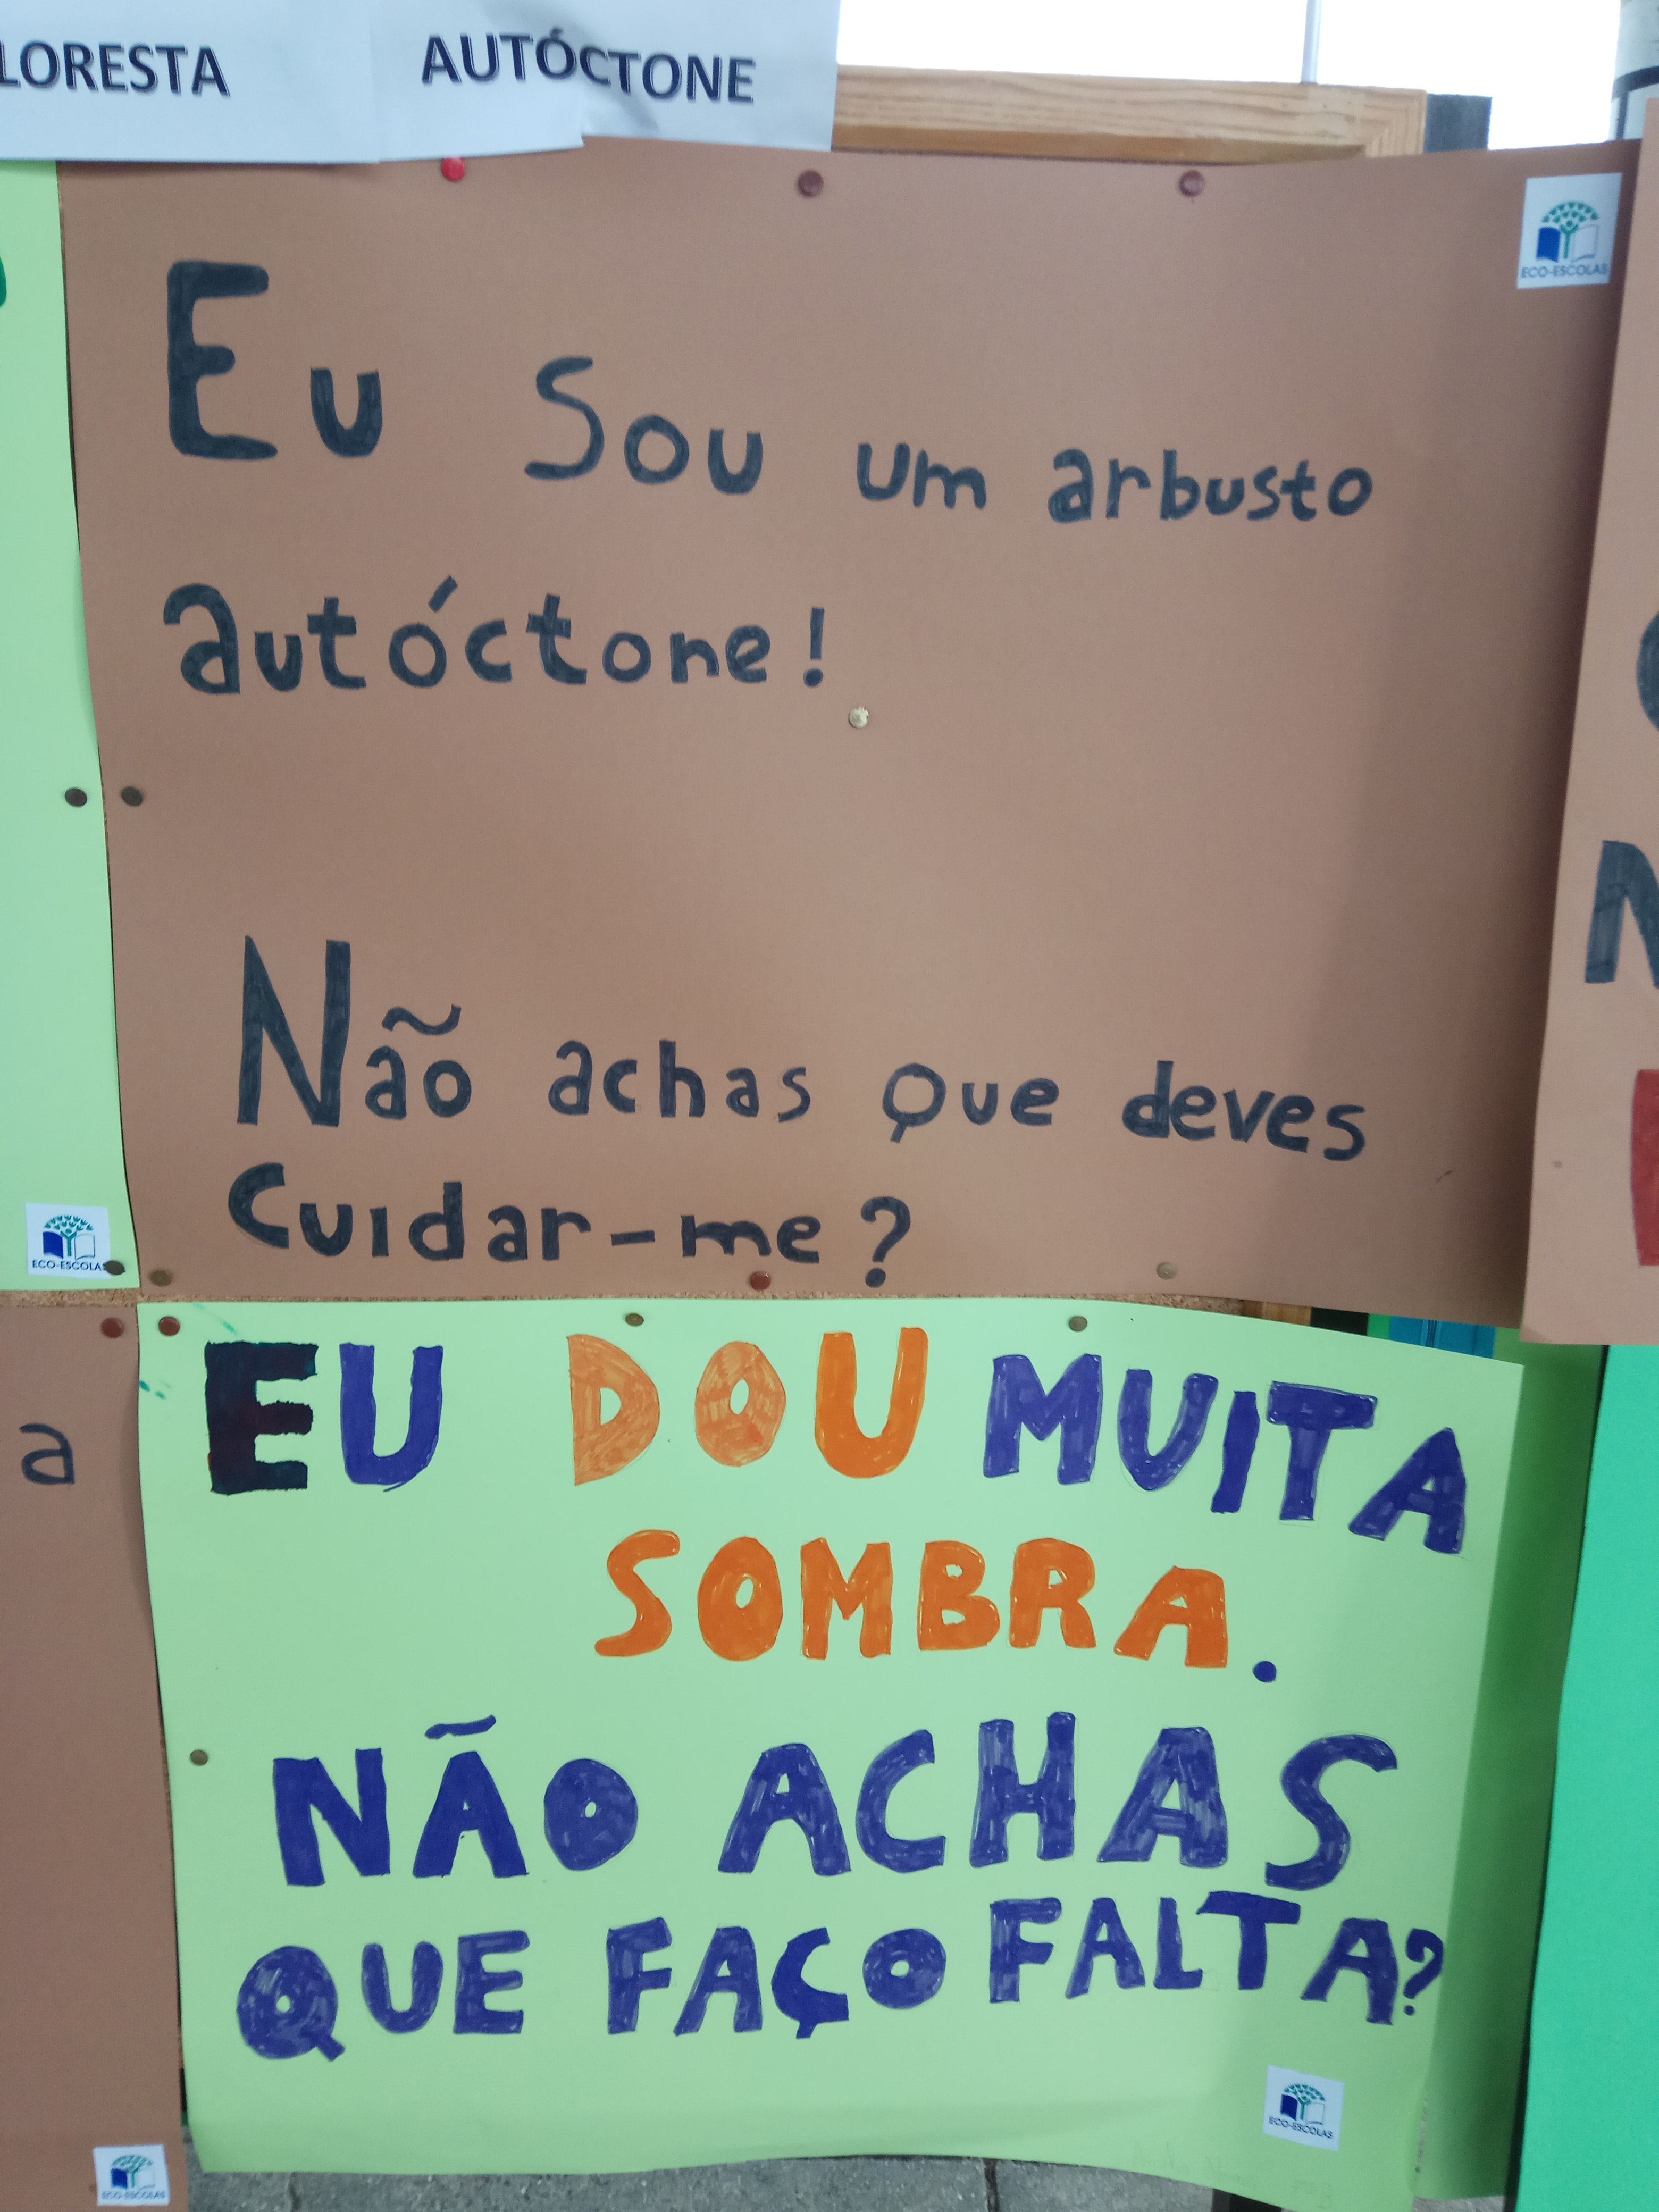 LORESTA AUTÓCTONE
ECO-ESCOLAS
Eu Sou um arbusto
autóctone!
Não achas que deves
Cuidar-me?
ECO-ESCOLAS
a
EU DOU MUITA
SOMBRA.
NÃO ACHAS
QUE FAÇO FALTA?
ECO-ESCOLAS
ECO-ESCOLAS
N